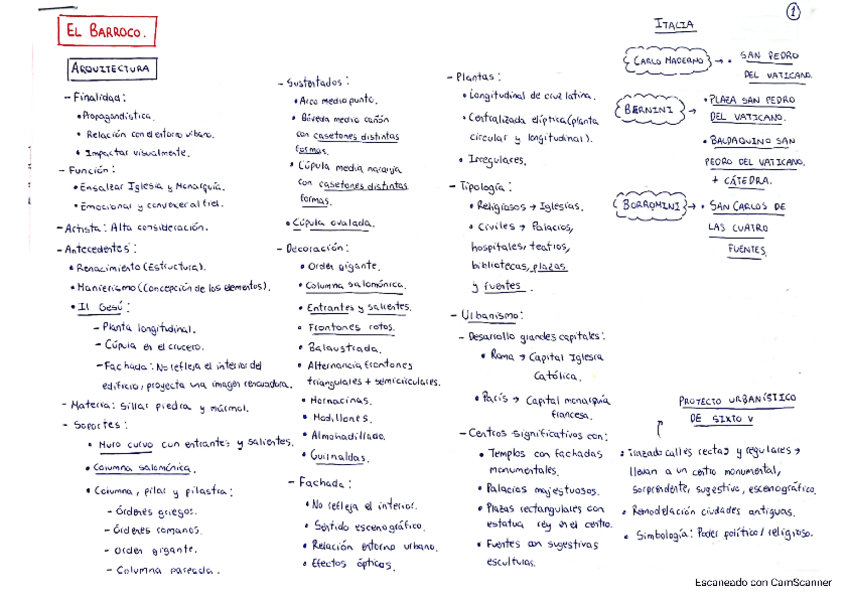 EL BARROCO.
ARQUITECTURA
- Finalidad:
• Propagandística.
• Relación con el entorno urbano.
• Impactar visualmente.
- Función:
• Ensalzar Iglesia y Monarquía.
• Emocional y convencer al fiel.
- Artista: Alta consideración.
- Antecedentes:
• Renacimiento (Estructura).
• Manierismo (Concepción de los elementos).
• Il Gesú:
- Planta longitudinal.
- Cúpula en el crucero.
- Fachada: No refleja el interior del
edificio, proyecta una imagen renovadora.
- Materia: Sillar piedra y mármol.
- Soportes:
• Muro curvo con entrantes y salientes.
• Columna salomónica.
• Columna, pilar y pilastra:
- Órdenes griegos.
- Órdenes romanos.
- Orden gigante.
- Columna pareada.
- Sustentados:
• Arco medio punto.
• Bóveda medio cañón
con casetones distintas
formas.
• Cúpula media naranja
con casetones distintas
formas.
• Cúpula ovalada.
- Decoración:
• Orden gigante.
• Columna salomónica.
• Entrantes y salientes.
• Frontones rotos.
• Balaustrada.
• Alternancia frontones
triangulares + semicirculares.
• Hornacinas.
• Modillones.
• Almohadillado.
• Guirnaldas.
- Fachada:
• No refleja el interior.
• Sentido escenográfico.
• Relación entorno urbano.
• Efectos ópticos.
- Plantas:
• Longitudinal de cruz latina.
• Centralizada elíptica (planta
circular y longitudinal).
• Irregulares.
- Tipología:
• Religiosos → Iglesias.
• Civiles → Palacios,
hospitales, teatros,
bibliotecas, plazas
y fuentes.
- Urbanismo:
- Desarrollo grandes capitales:
• Roma → Capital Iglesia
Católica.
• París → Capital monarquía
francesa.
- Centros significativos con:
• Templos con fachadas
monumentales.
• Palacios majestuosos.
• Plazas rectangulares con
estatua rey en el centro.
• Fuentes con sugestivas
esculturas.
1
ITALIA
CARLO MADERNO → • SAN PEDRO
DEL VATICANO.
BERNINI → • PLAZA SAN PEDRO
DEL VATICANO.
• BALDAQUINO SAN
PEDRO DEL VATICANO.
+ CÁTEDRA.
BORROMINI → • SAN CARLOS DE
LAS CUATRO
FUENTES.
PROYECTO URBANÍSTICO
DE SIXTO V
• Trazado calles rectas y regulares →
llevan a un centro monumental,
sorprendente, sugestivo, escenográfico.
• Remodelación ciudades antiguas.
• Simbología: Poder político/religioso.
Escaneado con CamScanner